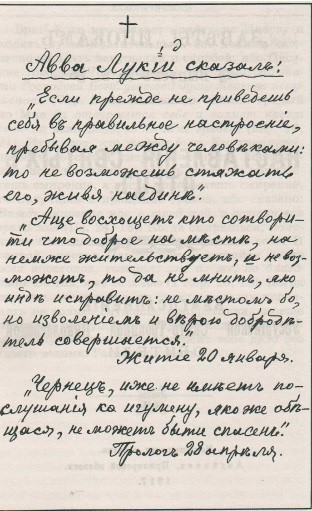 Авва Лукій сказалъ:
„Если прежде не приведешь
себя въ правильное настроеніе,
пребывая между человѣками:
то не возможешь стяжать
его, живя наединѣ“.
„Аще восхощетъ кто сотвори-
ти что доброе на мѣстѣ, на
немже жительствуетъ, и невоз-
можетъ, то да не мнитъ, яко
индѣ исправитъ: не мѣстомъ бо,
но изволеніемъ и вѣрою добродѣ-
тель совершается“.
Житіе 20 января.
„Чернецъ, иже не имѣетъ по-
слушанія ко игумену, якоже обѣ-
щася, не можетъ быти спасенъ“.
Прологъ 28 апрѣля.